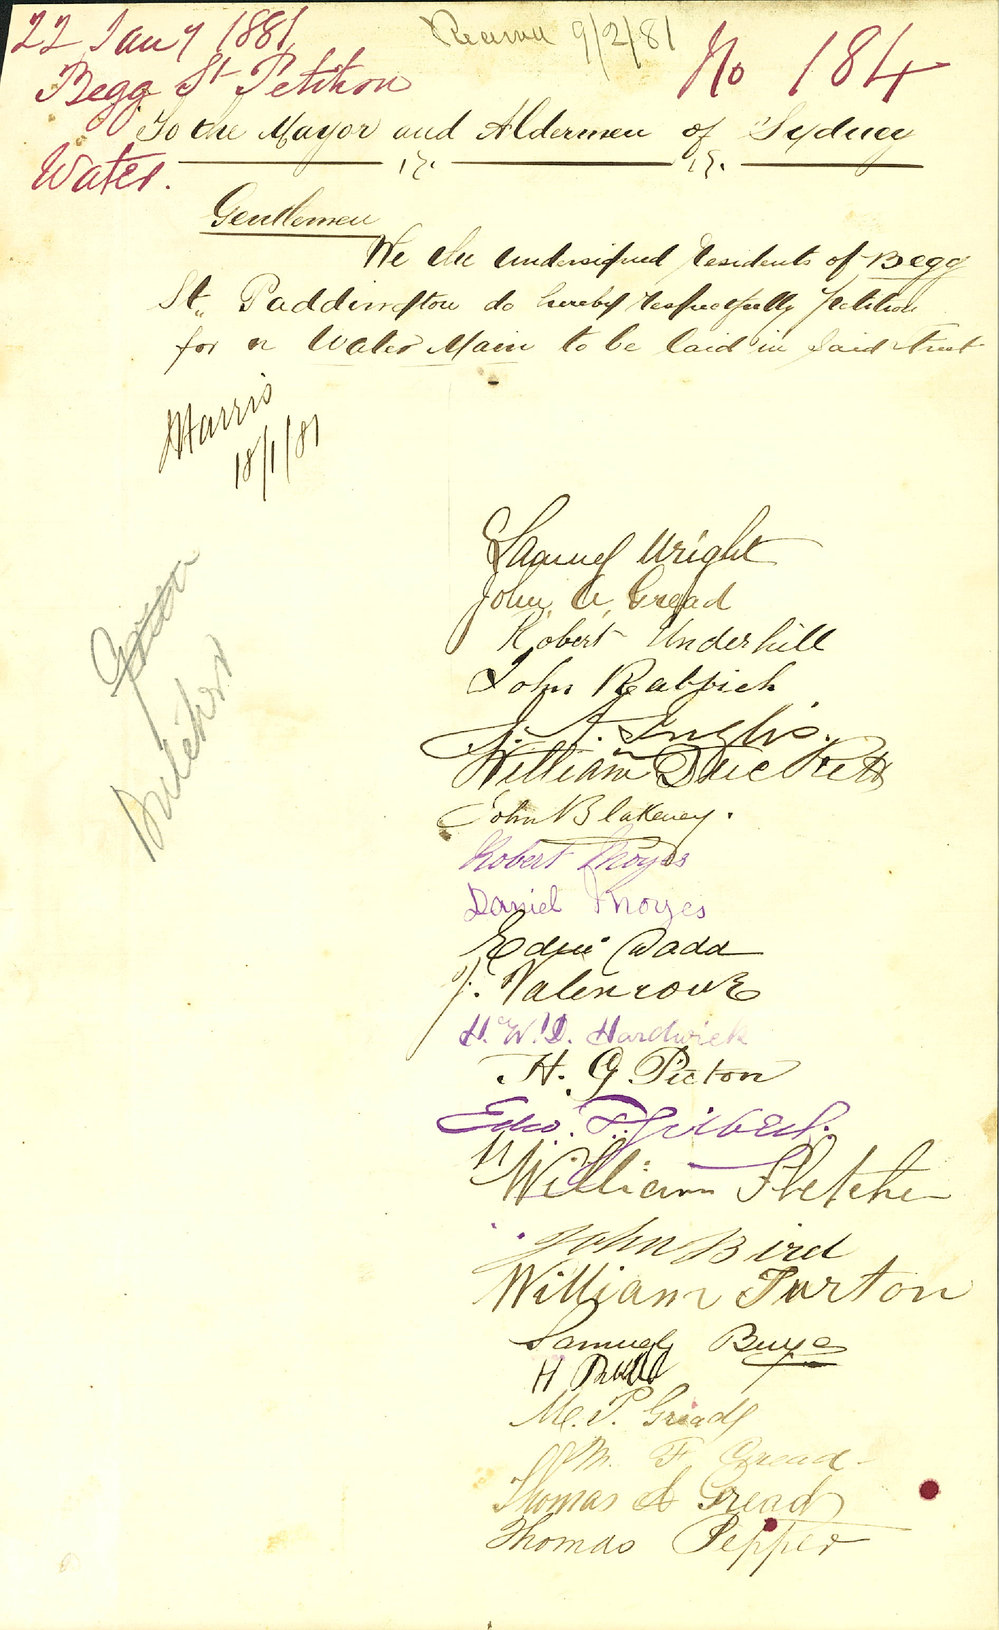 22 Jany 1881
Received 9/2/81
No 184
Begg St Petition
To the Mayor and Aldermen of Sydney
Water.
Gentlemen
We the undersigned residents of Begg
St,, Paddington do hereby respectfully petition
for a Water Main to be laid in said street
Harris
18/1/81
Samuel Wright
John A Gread
Robert Underhill
John Rabbich
Inglis.
William Duckett
John Blakeney.
Robert Noyes
Daniel Noyes
Dadd
J.
H. W. D. Hardwick
H. G. Picton
Edw. T. Gilbert.
William Fletcher
John Bird
William Turton
Samuel
H
M. P. Gread
Wm. F Gread
Thomas A Gread
Thomas Pepper